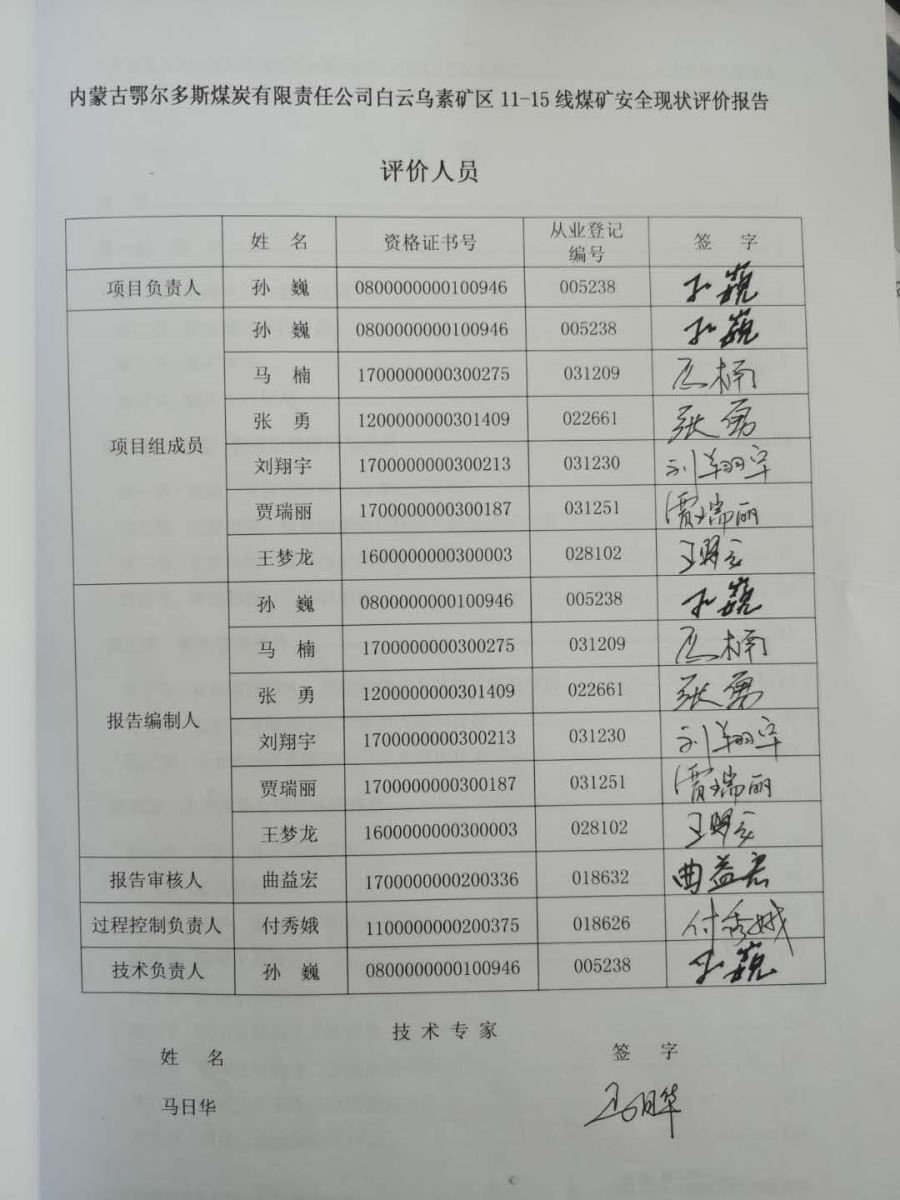 内蒙古鄂尔多斯煤炭有限责任公司白云乌素矿区 11-15 线煤矿安全现状评价报告
评价人员
姓 名 资格证书号 从业登记编号 签 字
项目负责人 孙 巍 0800000000100946 005238 孙巍
项目组成员 孙 巍 0800000000100946 005238 孙巍
马 楠 1700000000300275 031209 马楠
张 勇 1200000000301409 022661 张勇
刘翔宇 1700000000300213 031230 刘翔宇
贾瑞丽 1700000000300187 031251 贾瑞丽
王梦龙 1600000000300003 028102 王梦龙
报告编制人 孙 巍 0800000000100946 005238 孙巍
马 楠 1700000000300275 031209 马楠
张 勇 1200000000301409 022661 张勇
刘翔宇 1700000000300213 031230 刘翔宇
贾瑞丽 1700000000300187 031251 贾瑞丽
王梦龙 1600000000300003 028102 王梦龙
报告审核人 曲益宏 1700000000200336 018632 曲益宏
过程控制负责人 付秀娥 1100000000200375 018626 付秀娥
技术负责人 孙 巍 0800000000100946 005238 孙巍
技 术 专 家
姓 名 签 字
马日华 马日华